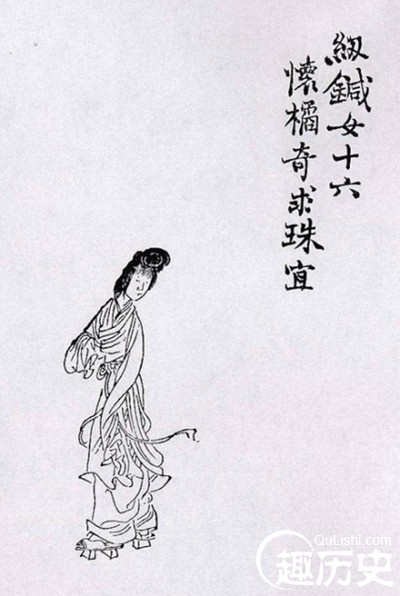 紉鍼女十六
懷橘奇求珠宜
QuLishi.com
趣历史